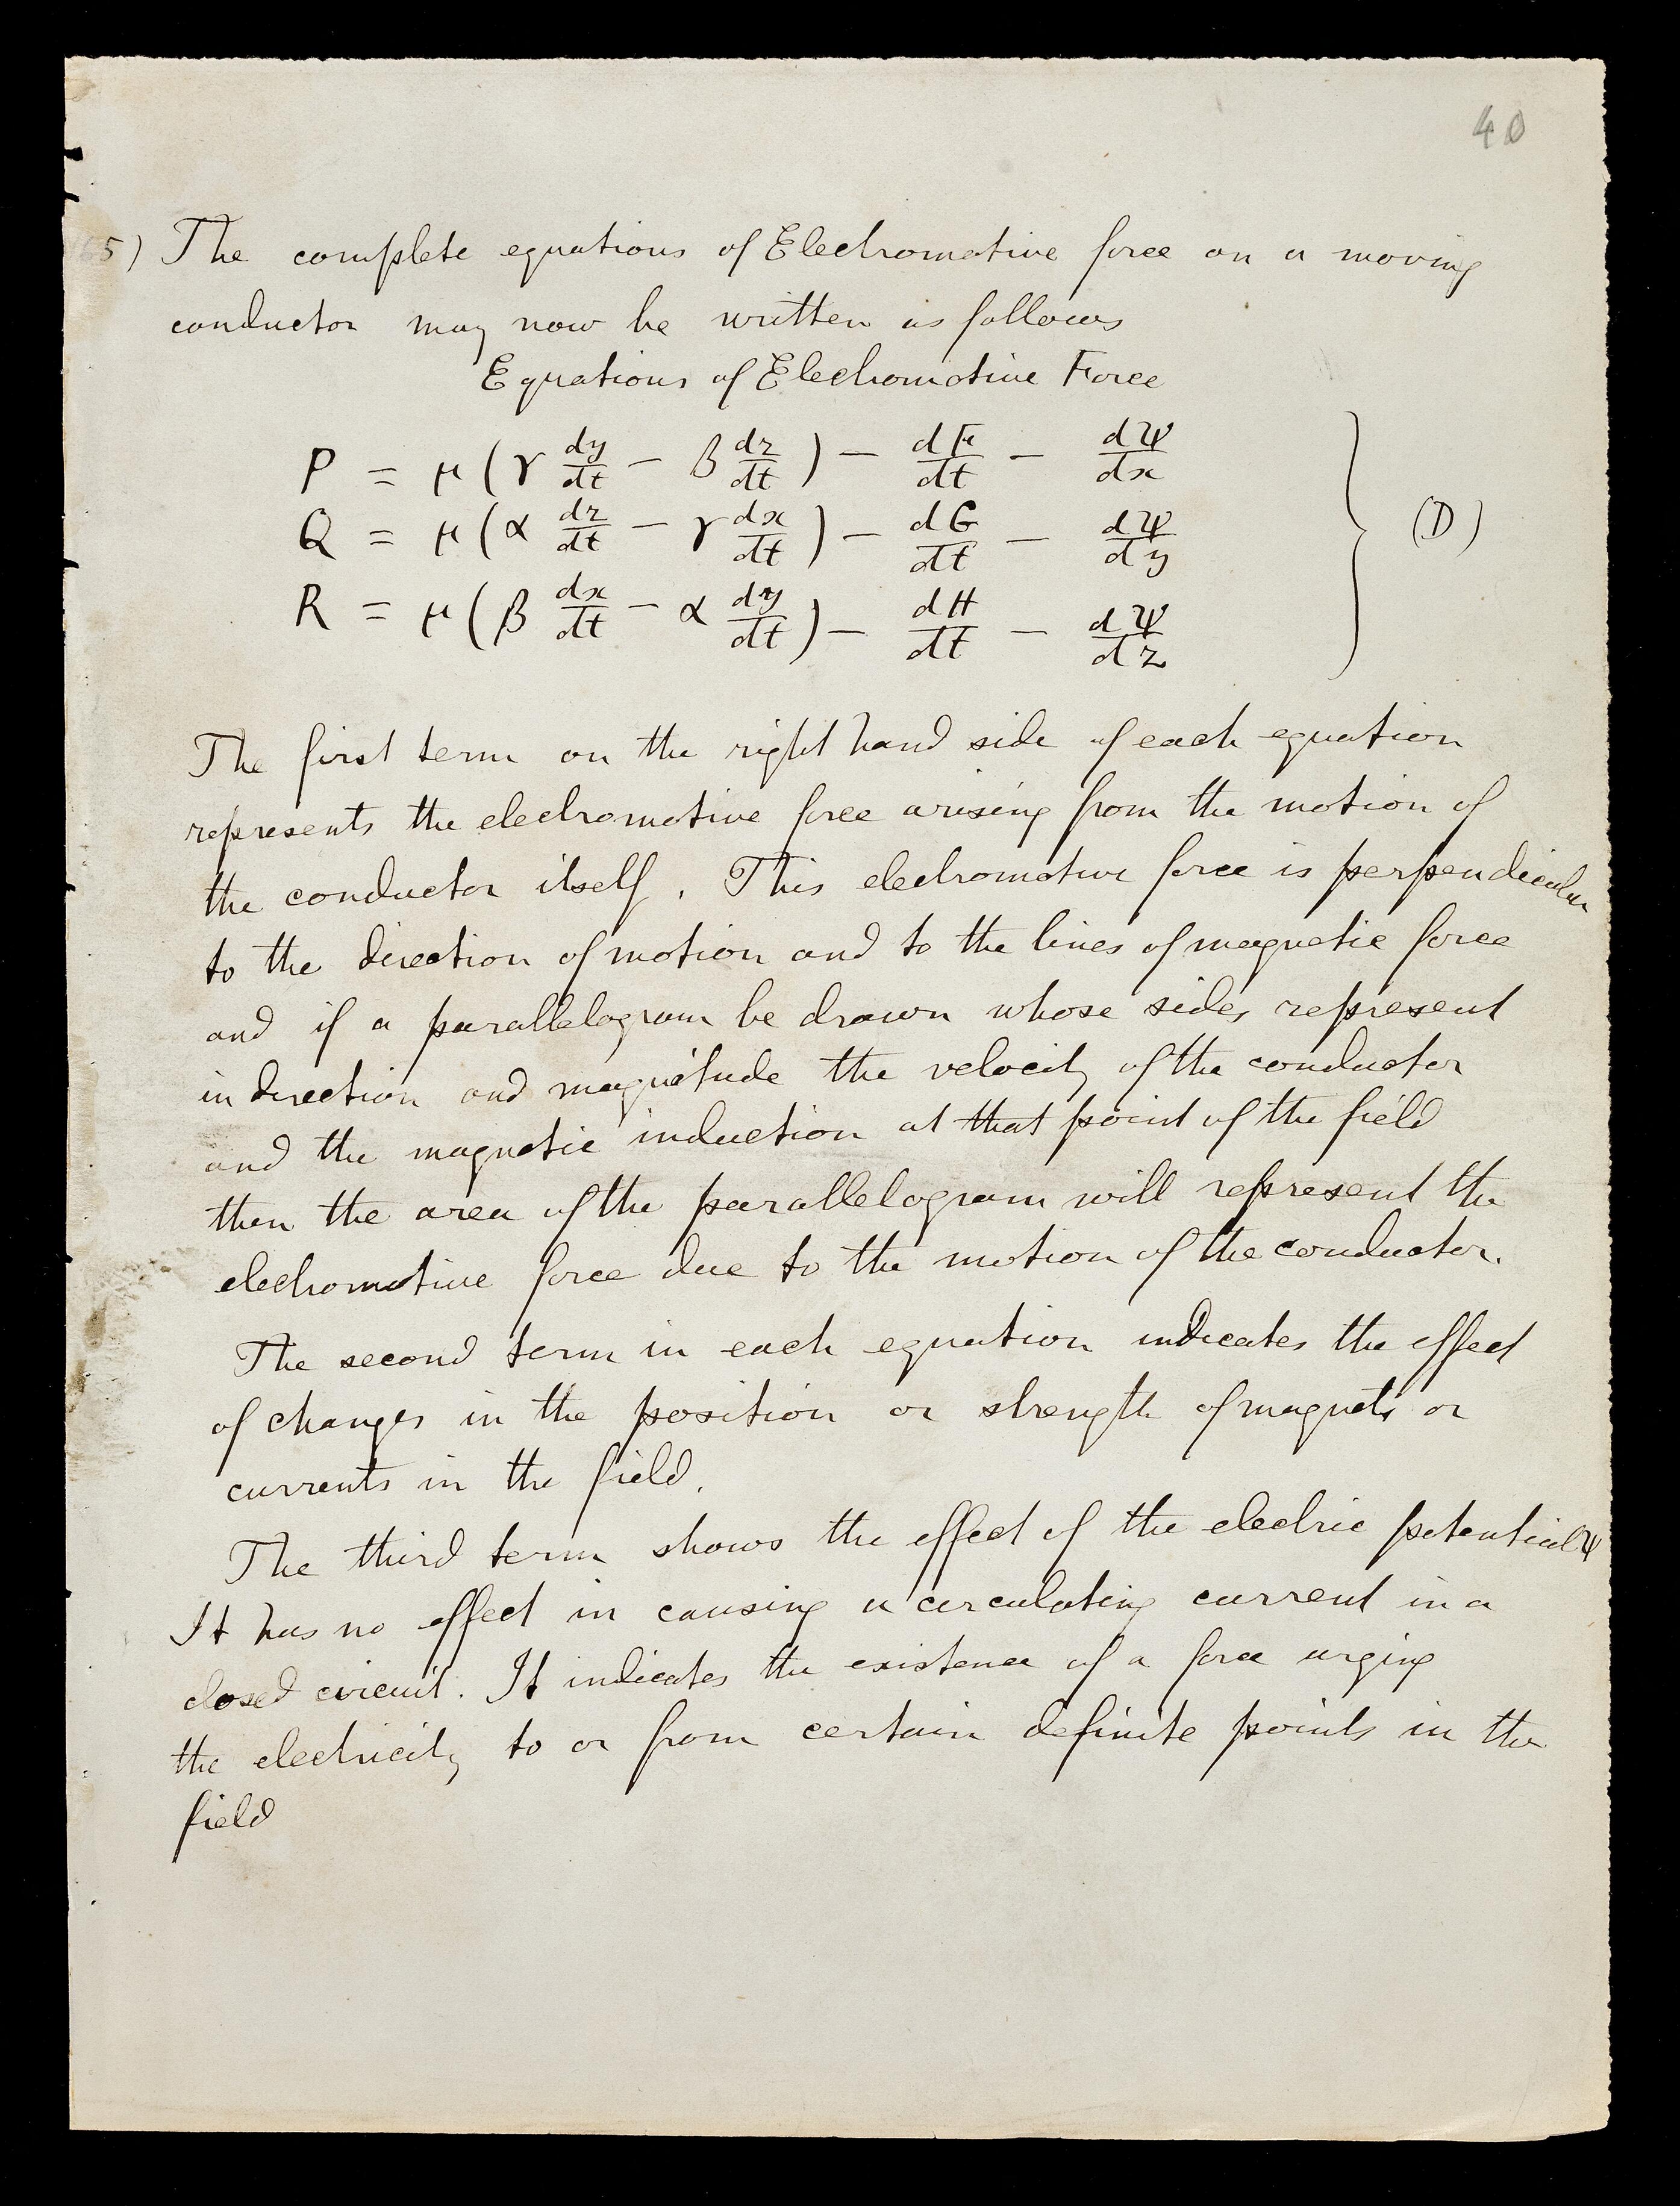 40
65) The complete equations of Electromotive force on a moving
conductor may now be written as follows
Equations of Electromotive Force
P = μ(γ dy/dt − β dz/dt) − dF/dt − dΨ/dx
Q = μ(α dz/dt − γ dx/dt) − dG/dt − dΨ/dy
R = μ(β dx/dt − α dy/dt) − dH/dt − dΨ/dz
(D)
The first term on the right hand side of each equation
represents the electromotive force arising from the motion of
the conductor itself. This electromotive force is perpendicular
to the direction of motion and to the lines of magnetic force
and if a parallelogram be drawn whose sides represent
in direction and magnitude the velocity of the conductor
and the magnetic induction at that point of the field
then the area of the parallelogram will represent the
electromotive force due to the motion of the conductor.
The second term in each equation indicates the effect
of changes in the position or strength of magnets or
currents in the field.
The third term shows the effect of the electric potential Ψ
It has no effect in causing a circulating current in a
closed circuit. It indicates the existence of a force urging
the electricity to or from certain definite points in the
field